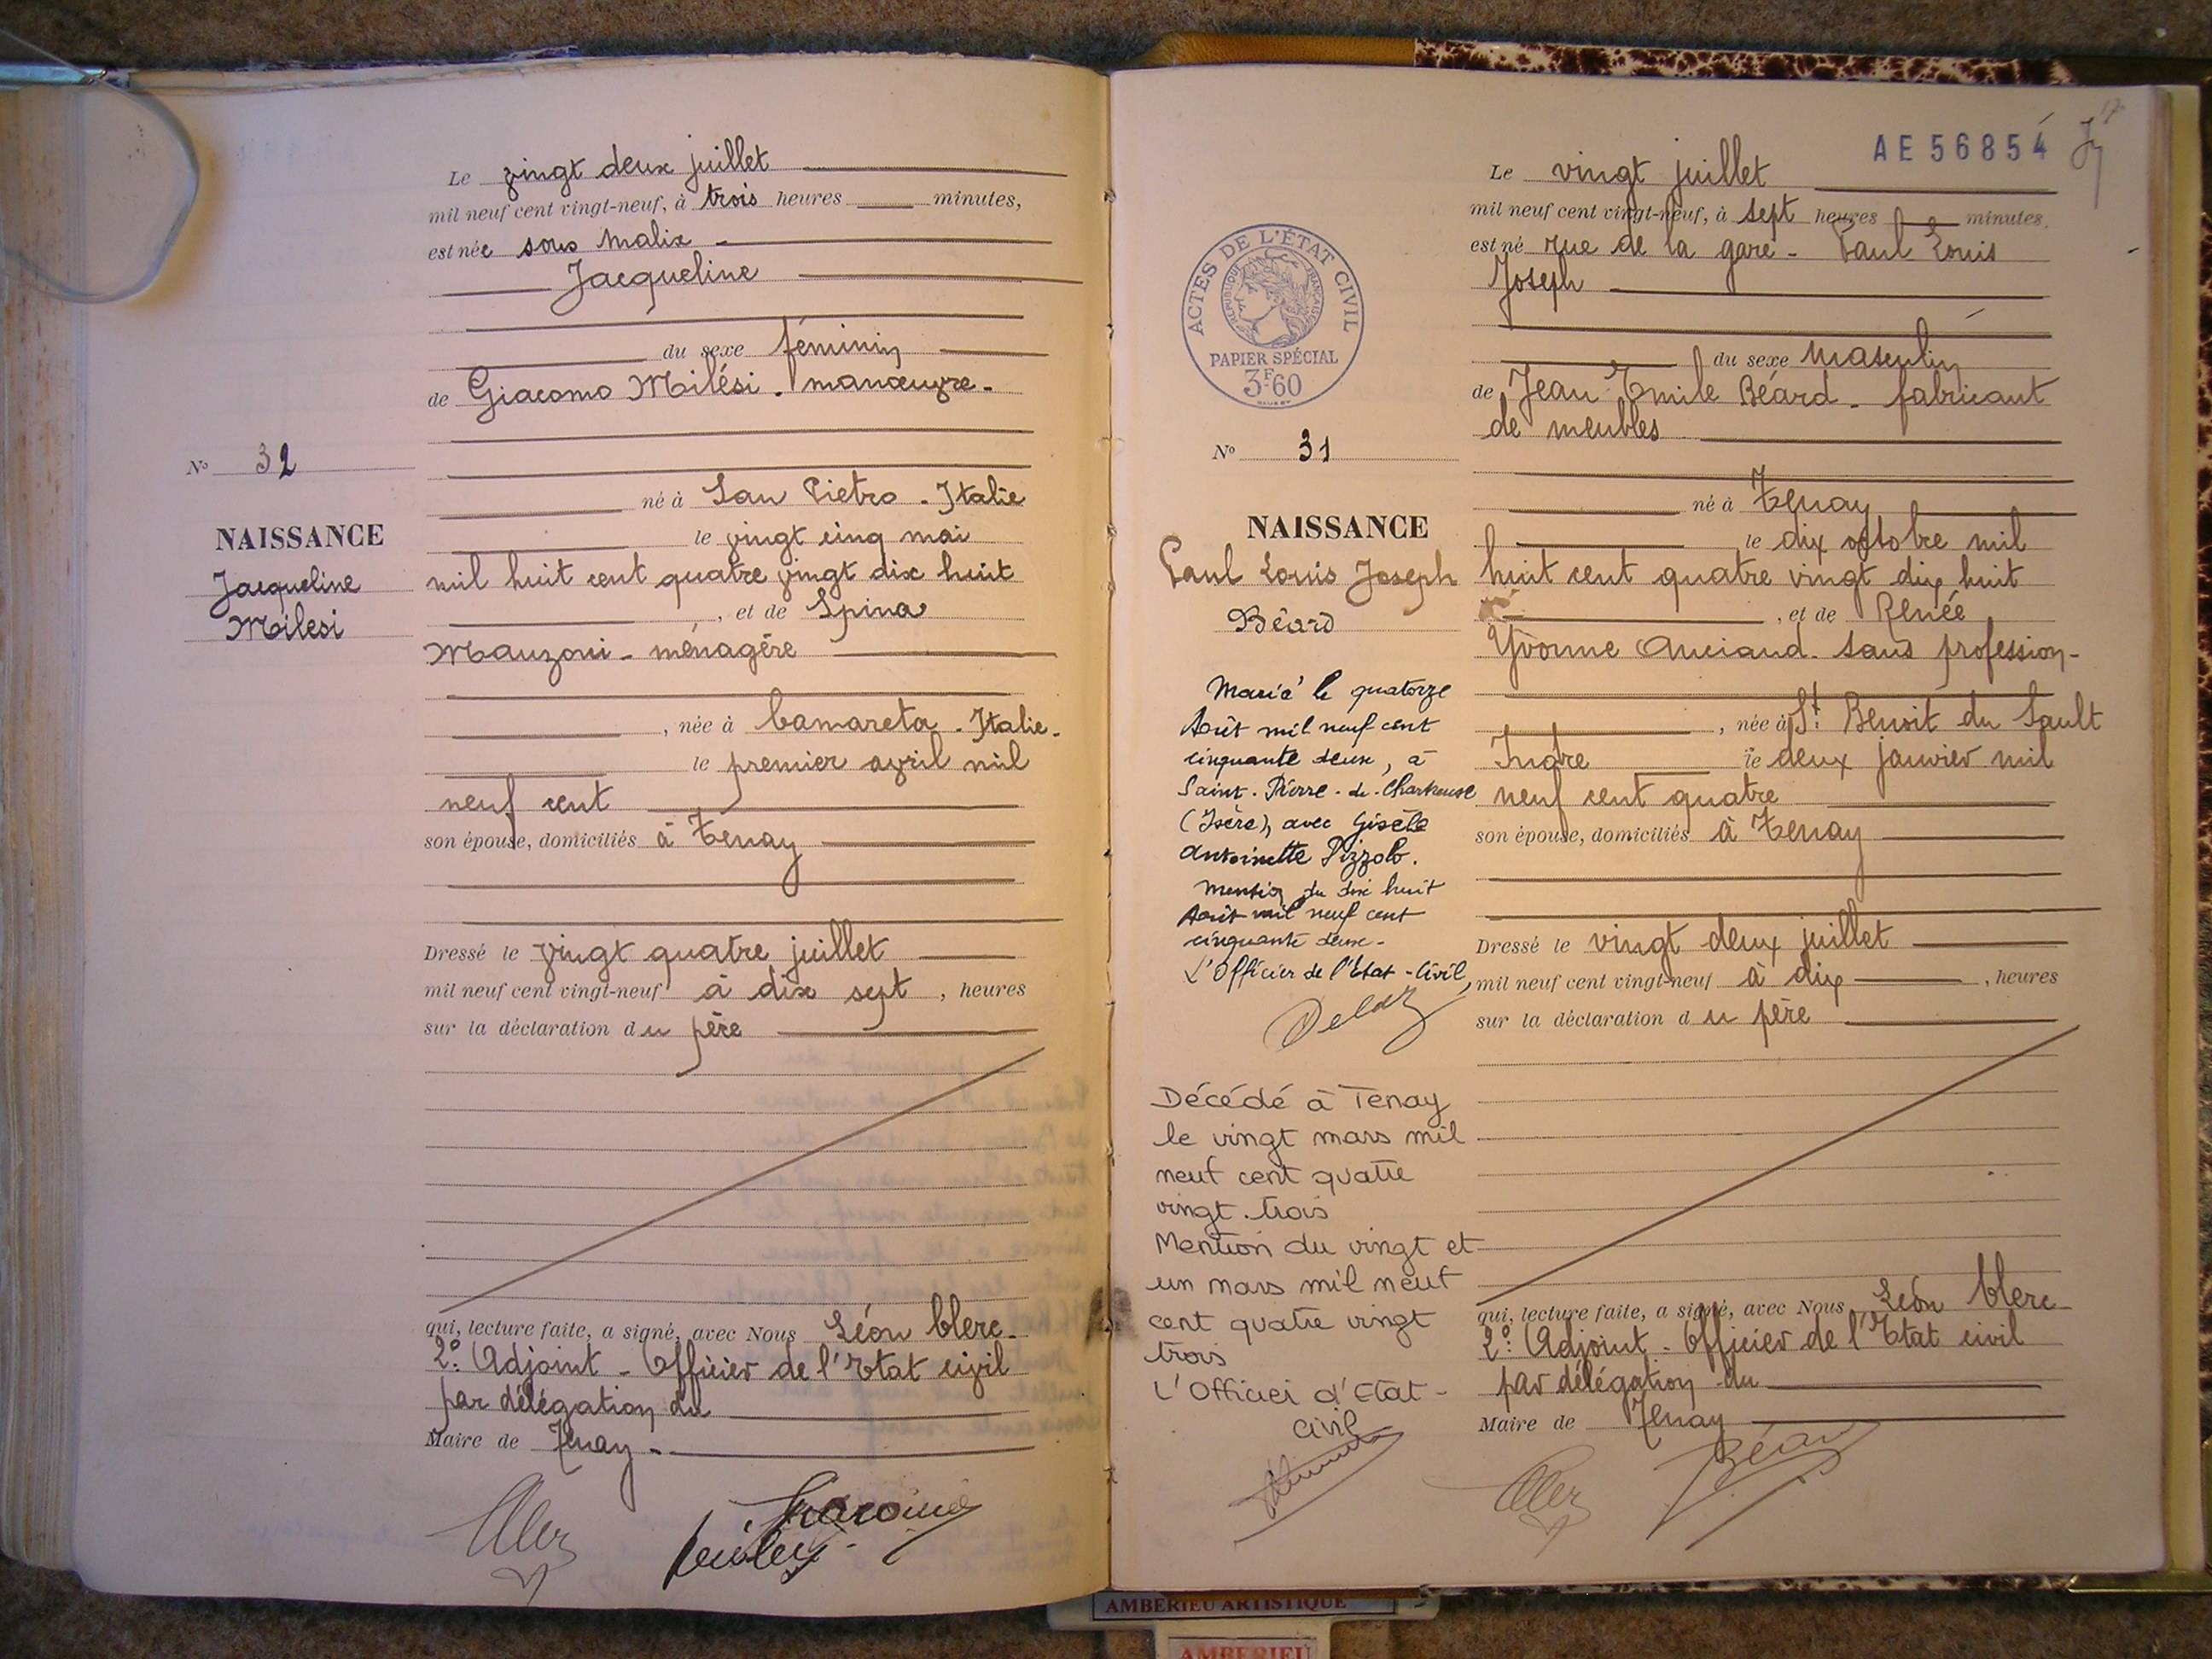 Le vingt deux juillet
mil neuf cent vingt-neuf, à trois heures minutes,
est née sous Malix -
Jacqueline
du sexe féminin
de Giacomo Milési - manœuvre -
né à San Pietro - Italie
le vingt cinq mai
mil huit cent quatre vingt dix huit
, et de Spina
Manzoni - ménagère
, née à Camareta - Italie -
le premier avril mil
neuf cent
son épouse, domiciliés à Tenay
Dressé le vingt quatre juillet
mil neuf cent vingt-neuf à dix sept , heures
sur la déclaration du père
qui, lecture faite, a signé, avec Nous Léon Clerc -
2e: Adjoint - Officier de l'Etat civil
par délégation du
Maire de Tenay -
No 32
NAISSANCE
Jacqueline
Milesi
AE 56854
Le vingt juillet
mil neuf cent vingt-neuf, à sept heures minutes,
est né rue de la gare - Paul Louis
Joseph
du sexe masculin
de Jean Emile Béard - fabricant
de meubles
né à Tenay
le dix octobre mil
huit cent quatre vingt dix huit
, et de Renée
Yvonne Anciaud - sans profession -
, née à St Benoit du Sault
Indre le deux janvier mil
neuf cent quatre
son épouse, domiciliés à Tenay
Dressé le vingt deux juillet
mil neuf cent vingt-neuf à dix , heures
sur la déclaration du père
qui, lecture faite, a signé, avec Nous Léon Clerc
2e: Adjoint - Officier de l'Etat civil
par délégation du
Maire de Tenay
Béard
ACTES DE L'ÉTAT CIVIL
RÉPUBLIQUE FRANÇAISE
PAPIER SPÉCIAL
3F60
No 31
NAISSANCE
Paul Louis Joseph
Béard
Marié le quatorze
Août mil neuf cent
cinquante deux, à
Saint-Pierre-de-Chartreuse
(Isère), avec Gisèle
Antoinette Pizzolo.
Mention du dix huit
Août mil neuf cent
cinquante deux -
L'Officier de l'Etat-Civil,
Décédé à Tenay
le vingt mars mil
neuf cent quatre
vingt-trois
Mention du vingt et
un mars mil neuf
cent quatre vingt
trois
L'Officier d'Etat-
Civil
AMBERIEU ARTISTIQUE
AMBERIEU